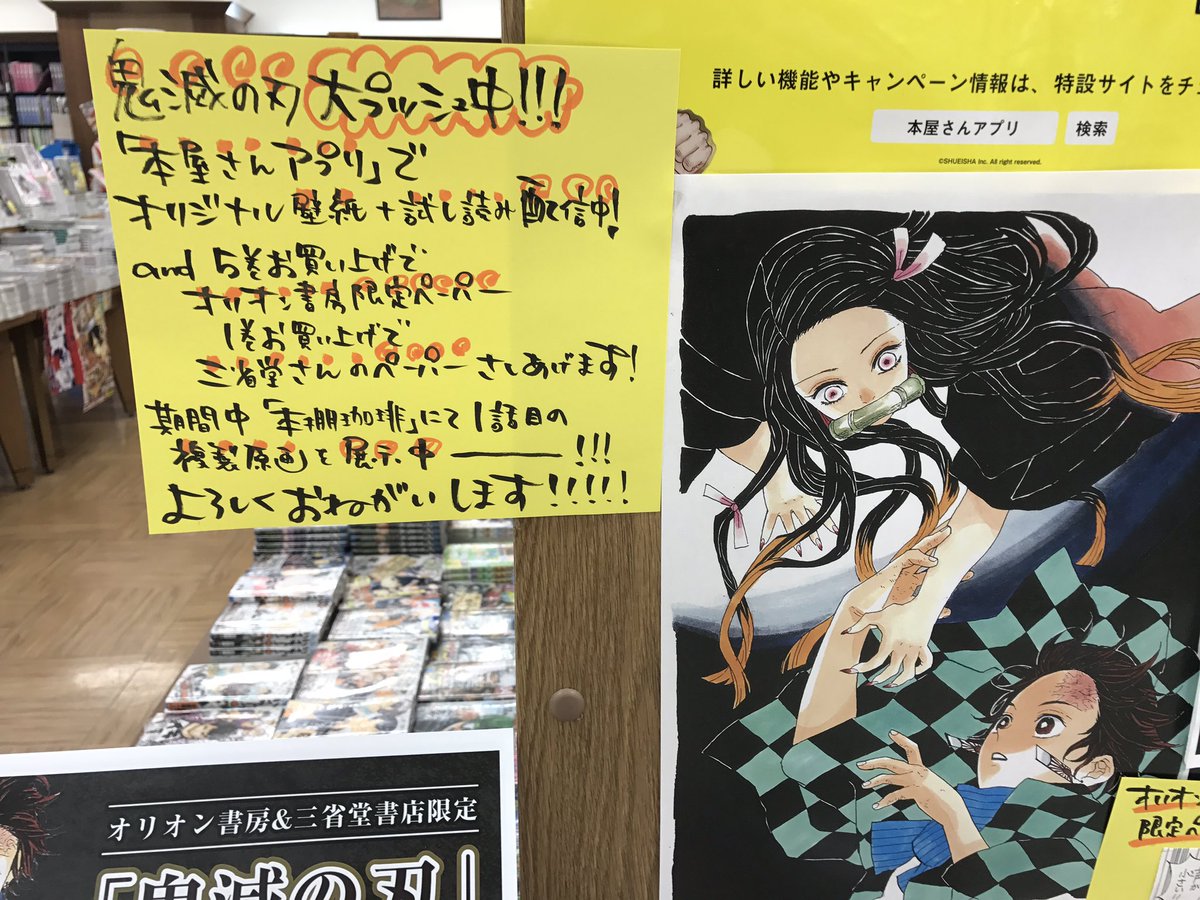 鬼滅の刃 大プッシュ中!!!
「本屋さんアプリ」で
オリジナル壁紙+試し読み配信中!
and 5巻お買い上げで
オリオン書房限定ペーパー
1巻お買い上げで
三省堂さんのペーパーさしあげます!
期間中「本棚珈琲」にて1話目の
複製原画を展示中――!!!
よろしくおねがいします!!!!!
詳しい機能やキャンペーン情報は、特設サイトをチ
本屋さんアプリ 検索
©SHUEISHA Inc. All right reserved.
オリオン書房&三省堂書店限定
「鬼滅の刃」
オリオン
限定ペ